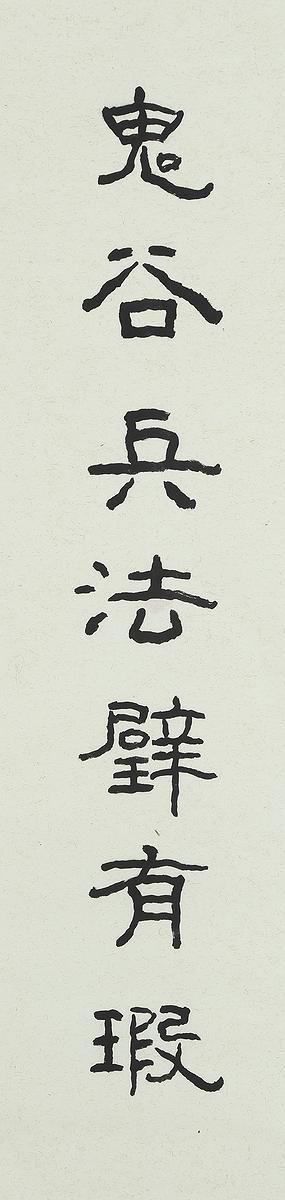 鬼谷兵法璧有瑕